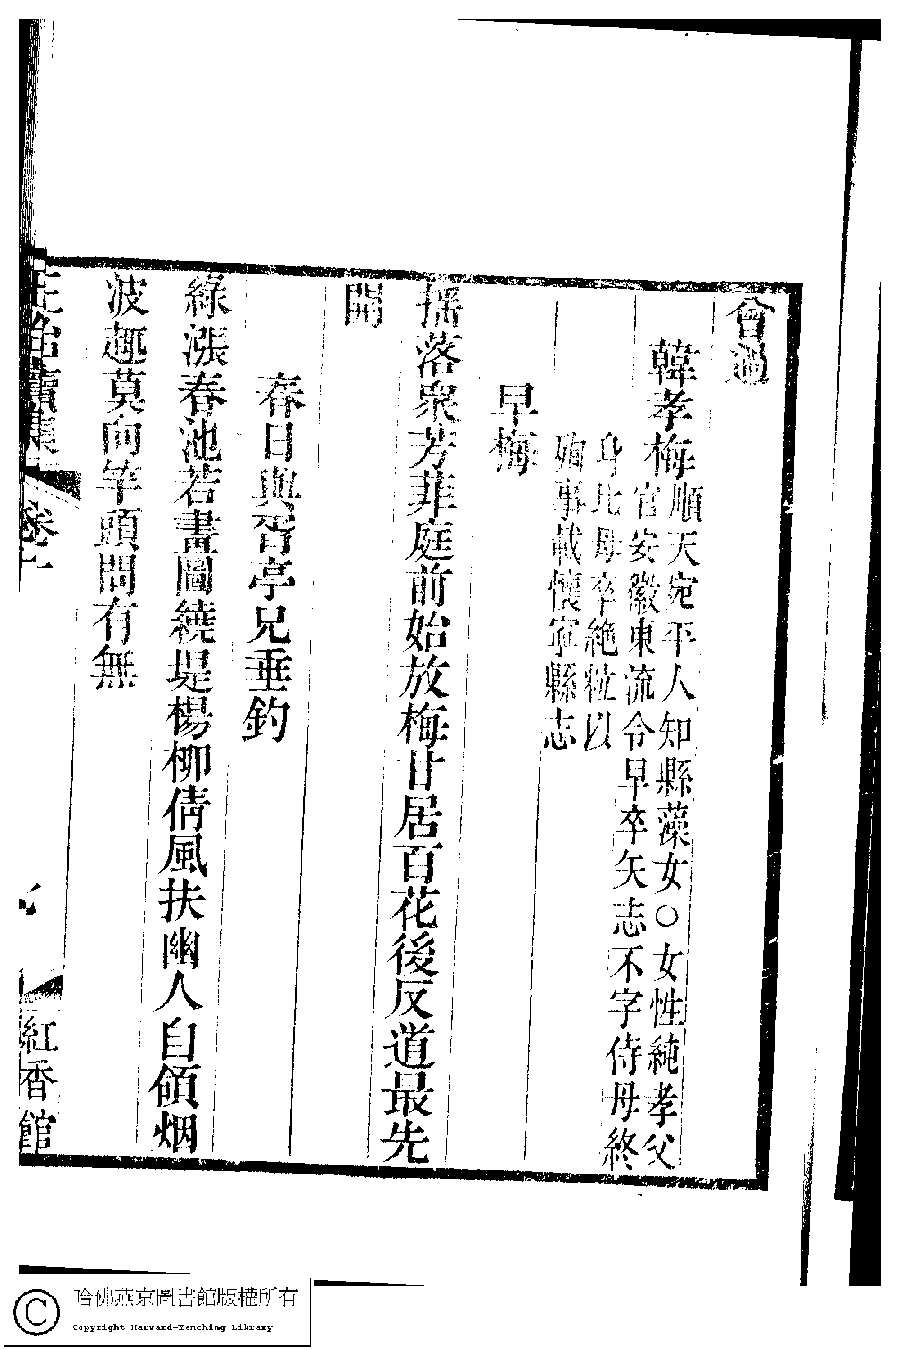 會過
韓孝梅順天宛平人知縣藻女○女性純孝父
官安徽東流令早卒矢志不字侍母終
身比母卒絶粒以
殉事載懷寧縣志
早梅
搖落衆芳菲庭前始放梅甘居百花後反道最先
開
春日與晋亭兄垂釣
綠漲春池若畫圖繞堤楊柳倩風扶幽人自領烟
波趣莫向竿頭問有無
正始續集 卷 紅香館
哈佛燕京圖書館版權所有
Copyright Harvard-Yenching Library